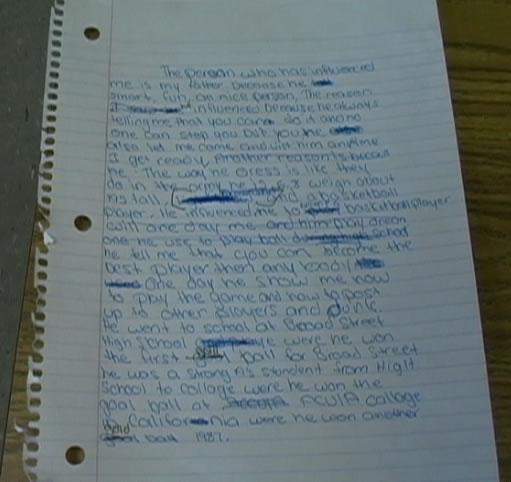 The person who has influenced
me is my father because he
smart, fun, an nice person. The reason
influenced because he always
telling me that you can do it and no
one can stop you but you he
also let me come and visit him anytime
I get ready. Another reason is becaus
he. The way he dress is like they
do in the army he weigh about
tall, basketball
player. He influenced me to basketball player
will one day me and him play on
one he use to play ball school
he tell me that you can become the
best player then any body.
One day he show me how
to play the game and how to post
up to other players and dunk.
He went to school at Broad Street
High School were he won
the first ball for Broad Street
he was a strong A's student from High
School to collage were he won the
goal ball at collage
California were he won another
ball 1987.